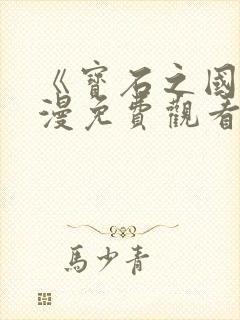 《寶石之國
漫免費觀看
馬少青